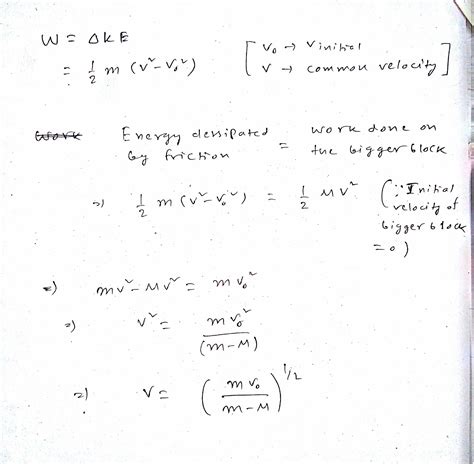 W = ΔKE [ v₀ → v initial
= 1/2 m (v² - v₀²) v → common velocity ]
Work Energy dessipated by friction = work done on the bigger block
=) 1/2 m (v² - v₀²) = 1/2 MV² (∵ Initial velocity of bigger block = 0)
=) mv² - Mv² = mv₀²
=) v² = mv₀² / (m-M)
=) v = ( mv₀ / m-M )^1/2